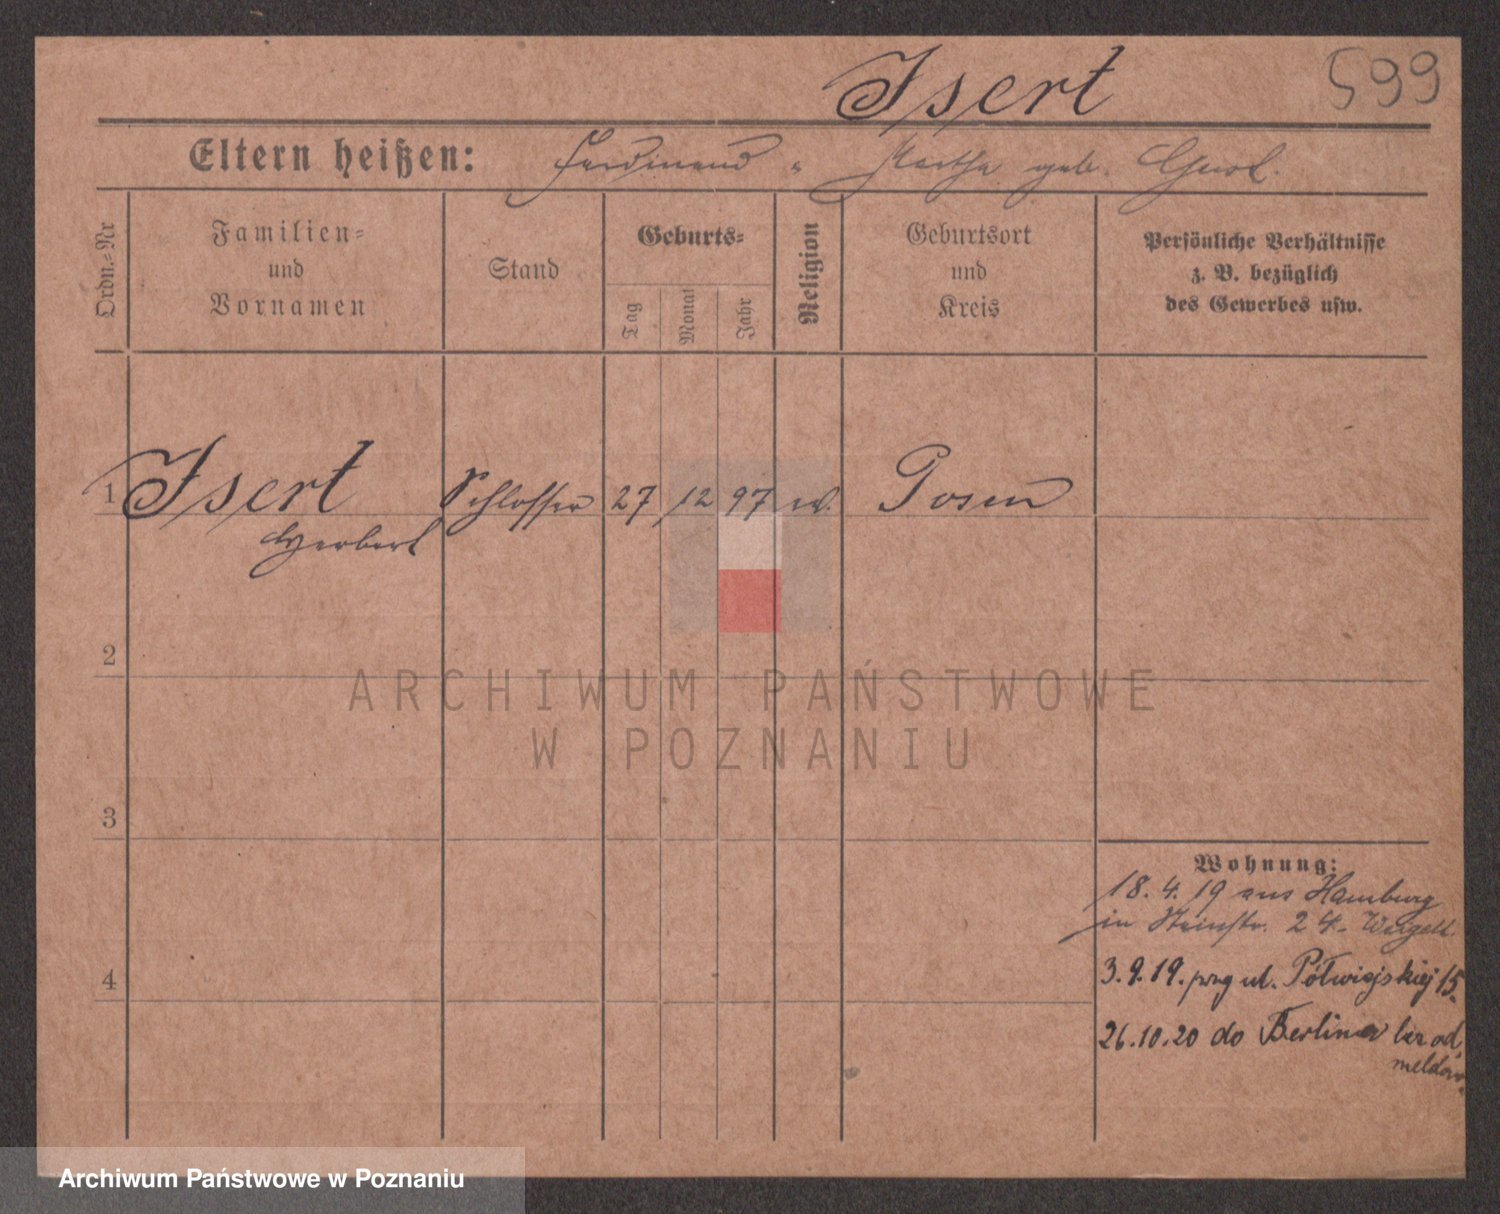 Isert
599
Eltern heißen: Ferdinand u. Martha geb.
Ordn.=Nr
Familien=
und
Vornamen
Stand
Geburts=
Tag
Monat
Jahr
Religion
Geburtsort
und
Kreis
Persönliche Verhältnisse
z. B. bezüglich
des Gewerbes usw.
1 Isert Schlosser 27 12 97 Posen
Herbert
2
3
4
ARCHIWUM PAŃSTWOWE
W POZNANIU
Wohnung:
18. 4. 19 aus Hamburg
in Steinstr. 2
3. 9. 19. ul. Półwiejskiej 15.
26. 10. 20 do Berlina bez od
meldow.
Archiwum Państwowe w Poznaniu